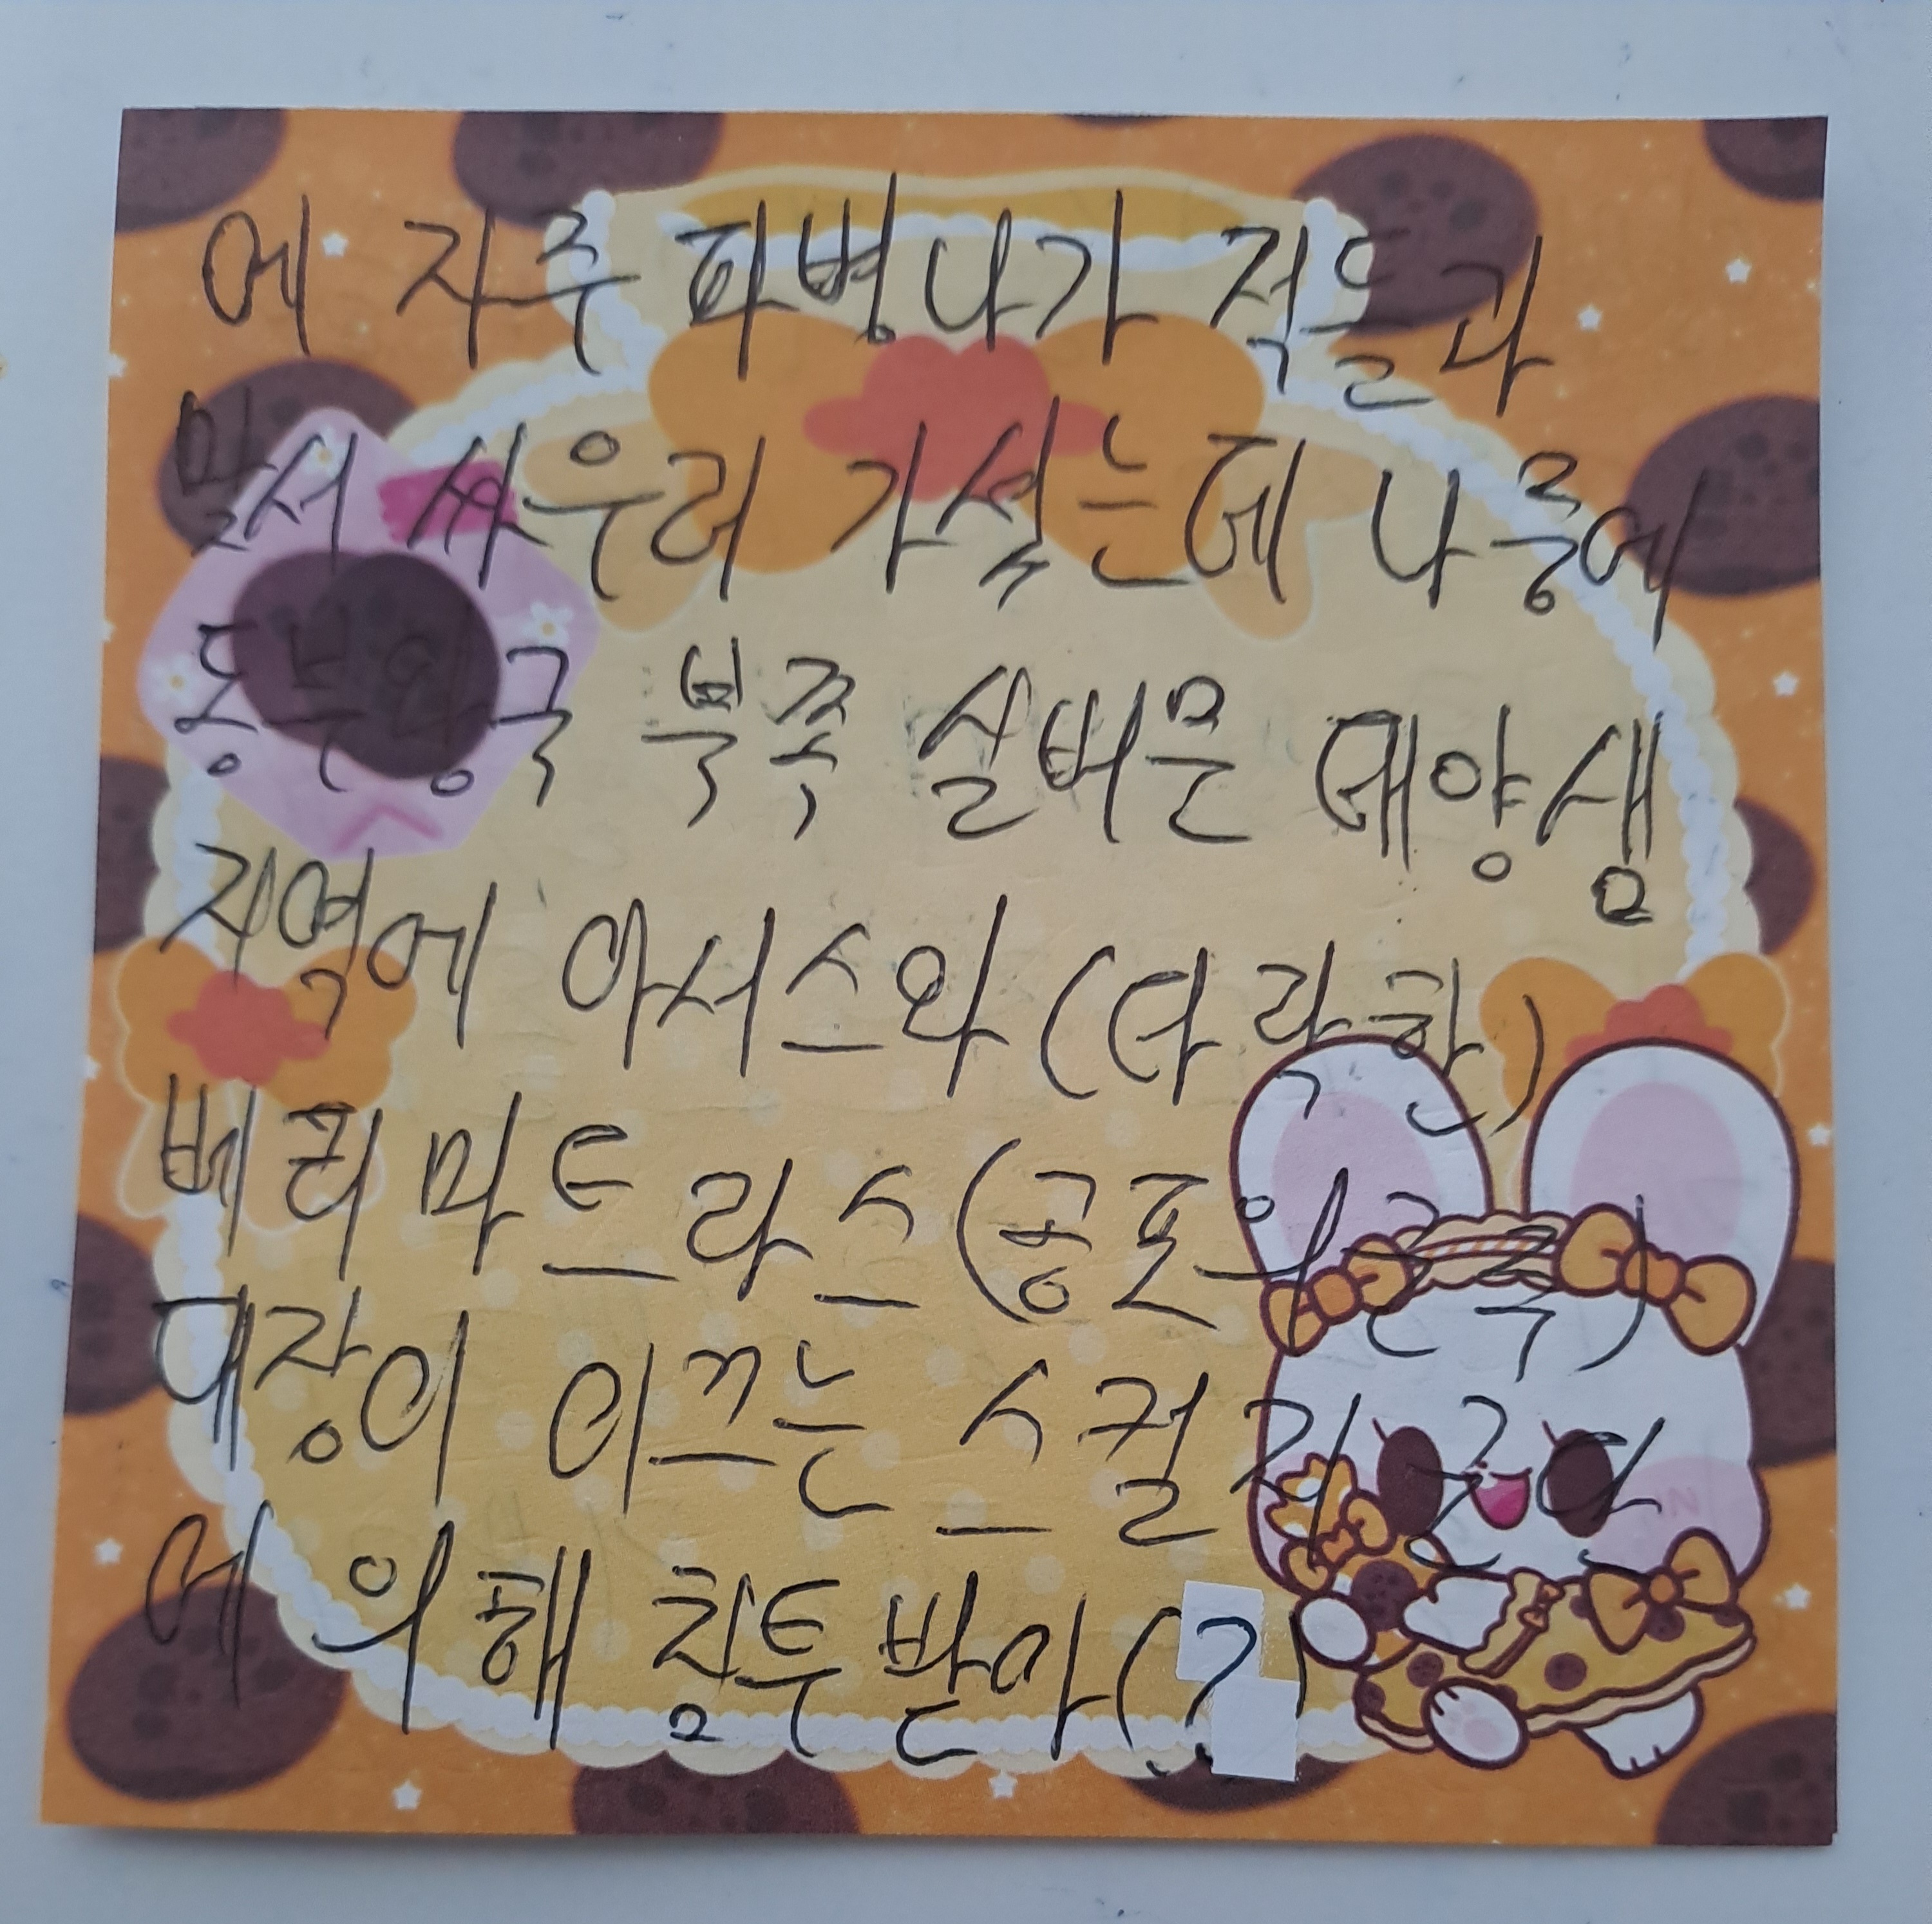 에 자주 파병나가 적들과
맞서 싸우러 가셨는데 나중에
동부왕국 북쪽 실버문 태양샘
지역에 아서스와 (타락한)
베리마트라스(공포의 군주)
대장이 이끄는 스컬지 군단
에 의해 침투받아(?)